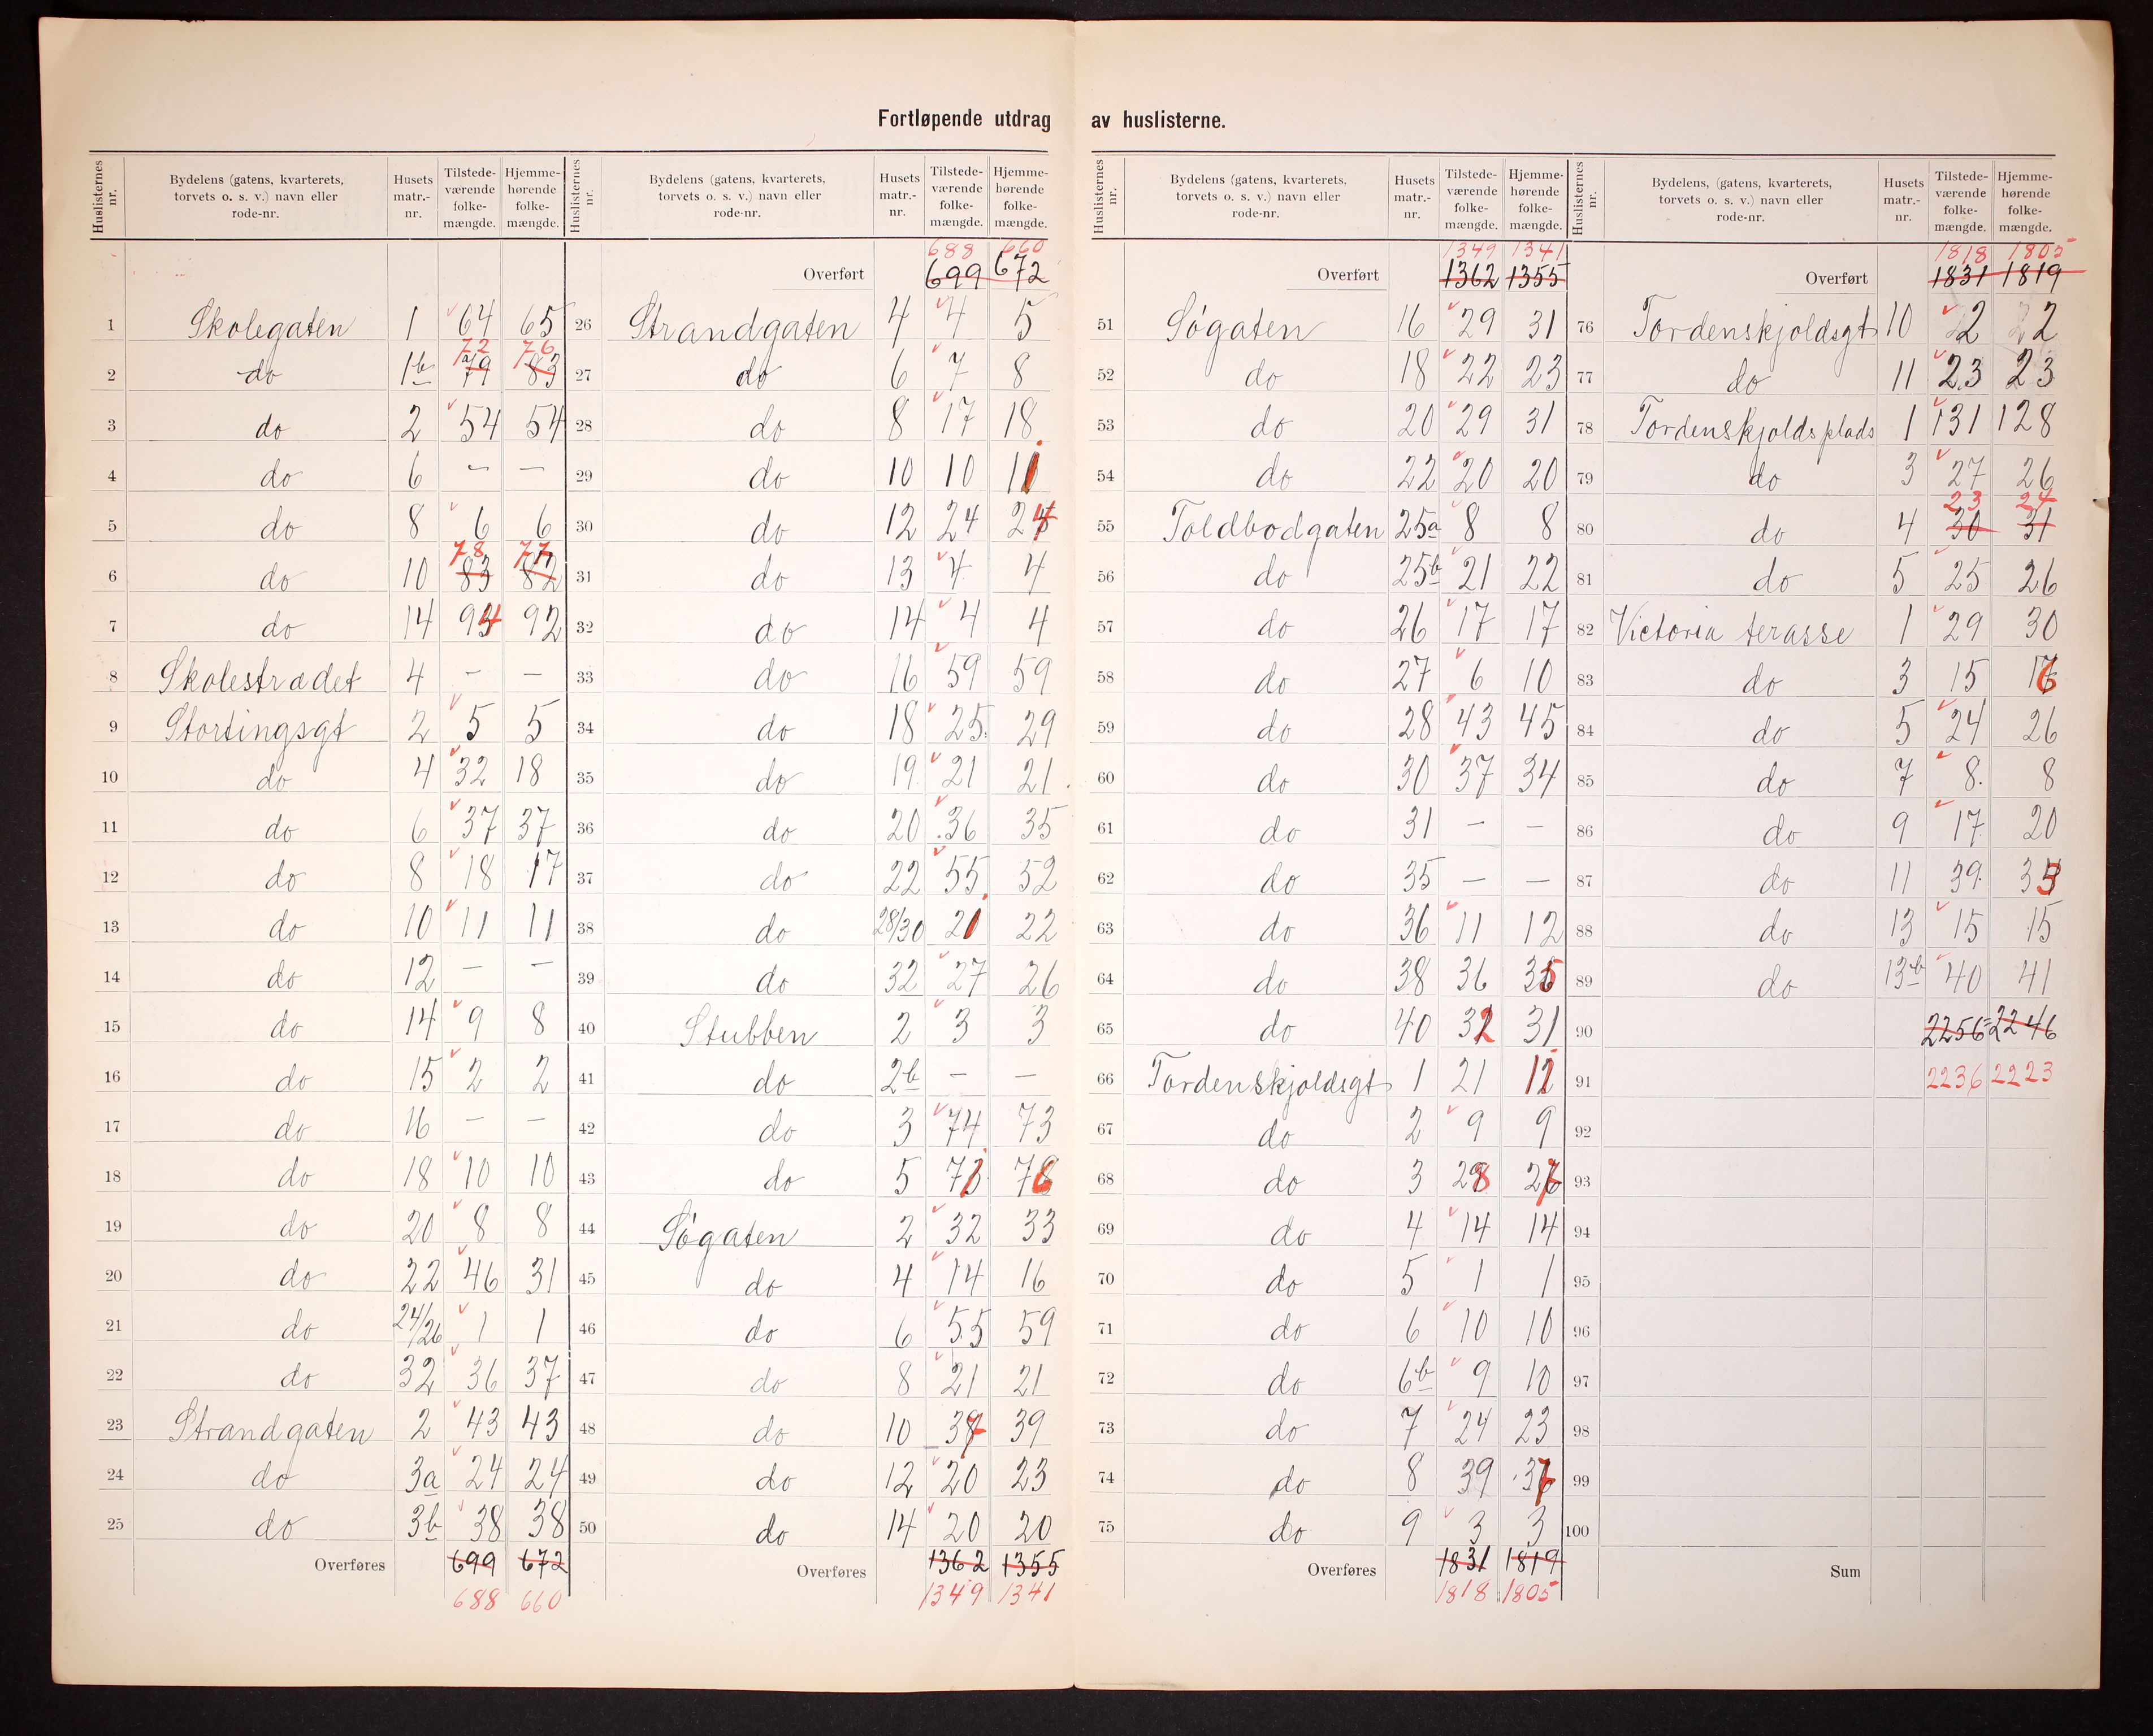 Fortløpende utdrag av huslisterne.
Huslisternes nr. Bydelens (gatens, kvarterets, torvets o. s. v.) navn eller rode-nr. Husets matr.-nr. Tilstedeværende folkemængde. Hjemmehørende folkemængde.
1 Skolegaten 1 64 65
2 do 1b 79 72 83 76
3 do 2 54 54
4 do 6 — —
5 do 8 6 6
6 do 10 83 78 82 77
7 do 14 94 92
8 Skolestrædet 4 — —
9 Stortingsgt 2 5 5
10 do 4 32 18
11 do 6 37 37
12 do 8 18 17
13 do 10 11 11
14 do 12 — —
15 do 14 9 8
16 do 15 2 2
17 do 16 — —
18 do 18 10 10
19 do 20 8 8
20 do 22 46 31
21 do 24/26 1 1
22 do 32 36 37
23 Strandgaten 2 43 43
24 do 3a 24 24
25 do 3b 38 38
Overføres 699 672
688 660
Huslisternes nr. Bydelens (gatens, kvarterets, torvets o. s. v.) navn eller rode-nr. Husets matr.-nr. Tilstedeværende folkemængde. Hjemmehørende folkemængde.
688 660
Overført 699 672
26 Strandgaten 4 4 5
27 do 6 7 8
28 do 8 17 18
29 do 10 10 11
30 do 12 24 24
31 do 13 4 4
32 do 14 4 4
33 do 16 59 59
34 do 18 25 29
35 do 19 21 21
36 do 20 36 35
37 do 22 55 52
38 do 28/30 21 22
39 do 32 27 26
40 Stubben 2 3 3
41 do 2b — —
42 do 3 74 73
43 do 5 71 76
44 Søgaten 2 32 33
45 do 4 14 16
46 do 6 55 59
47 do 8 21 21
48 do 10 37 39
49 do 12 20 23
50 do 14 20 20
Overføres 1362 1355
1349 1341
Huslisternes nr. Bydelens (gatens, kvarterets, torvets o. s. v.) navn eller rode-nr. Husets matr.-nr. Tilstedeværende folkemængde. Hjemmehørende folkemængde.
1349 1341
Overført 1362 1355
51 Søgaten 16 29 31
52 do 18 22 23
53 do 20 29 31
54 do 22 20 20
55 Toldbodgaten 25a 8 8
56 do 25b 21 22
57 do 26 17 17
58 do 27 6 10
59 do 28 43 45
60 do 30 37 34
61 do 31 — —
62 do 35 — —
63 do 36 11 12
64 do 38 36 35
65 do 40 32 31
66 Tordenskjoldsgt 1 21 12
67 do 2 9 9
68 do 3 28 27
69 do 4 14 14
70 do 5 1 1
71 do 6 10 10
72 do 6b 9 10
73 do 7 24 23
74 do 8 39 37
75 do 9 3 3
Overføres 1831 1819
1818 1805
Huslisternes nr. Bydelens, (gatens, kvarterets, torvets o. s. v.) navn eller rode-nr. Husets matr.-nr. Tilstedeværende folkemængde. Hjemmehørende folkemængde.
1818 1805
Overført 1831 1819
76 Tordenskjoldsgt 10 2 22
77 do 11 23 23
78 Tordenskjolds plads 1 131 128
79 do 3 27 26
80 do 4 30 23 31 24
81 do 5 25 26
82 Victoria terasse 1 29 30
83 do 3 15 16
84 do 5 24 26
85 do 7 8 8
86 do 9 17 20
87 do 11 39 33
88 do 13 15 15
89 do 13b 40 41
90 2256 2246
91 2236 2223
92
93
94
95
96
97
98
99
100
Sum